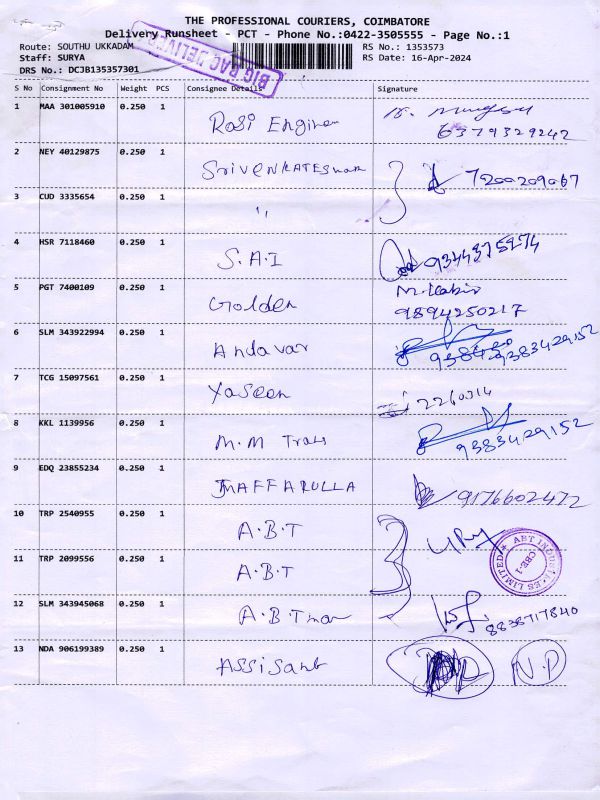 THE PROFESSIONAL COURIERS, COIMBATORE
Delivery Runsheet - PCT - Phone No.:0422-3505555 - Page No.:1
Route: SOUTHU UKKADAM RS No.: 1353573
Staff: SURYA RS Date: 16-Apr-2024
DRS No.: DCJB135357301
BIG BAG DELIVERY
S No Consignment No Weight PCS Consignee Details Signature
1 MAA 301005910 0.250 1
Rosi Engineer 6379329242
2 NEY 40129875 0.250 1
Srivenkateswara 7200209067
3 CUD 3335654 0.250 1
"
4 HSR 7118460 0.250 1
S.A.I 9344375274
5 PGT 7400109 0.250 1 M. Kabir
Golden 9894250217
6 SLM 343922994 0.250 1
Andavar 9383429152
7 TCG 15097561 0.250 1
Yaseen 2260314
8 KKL 1139956 0.250 1
M.M Trans 9383429152
9 EDQ 23855234 0.250 1
JAFFARULLA 9176602472
10 TRP 2540955 0.250 1
A.B.T
11 TRP 2099556 0.250 1
A.B.T
ABT INDUSTRIES LIMITED
CBE-1
12 SLM 343945068 0.250 1
A.B.T 8838717840
13 NDA 906199389 0.250 1
Assisant N.P